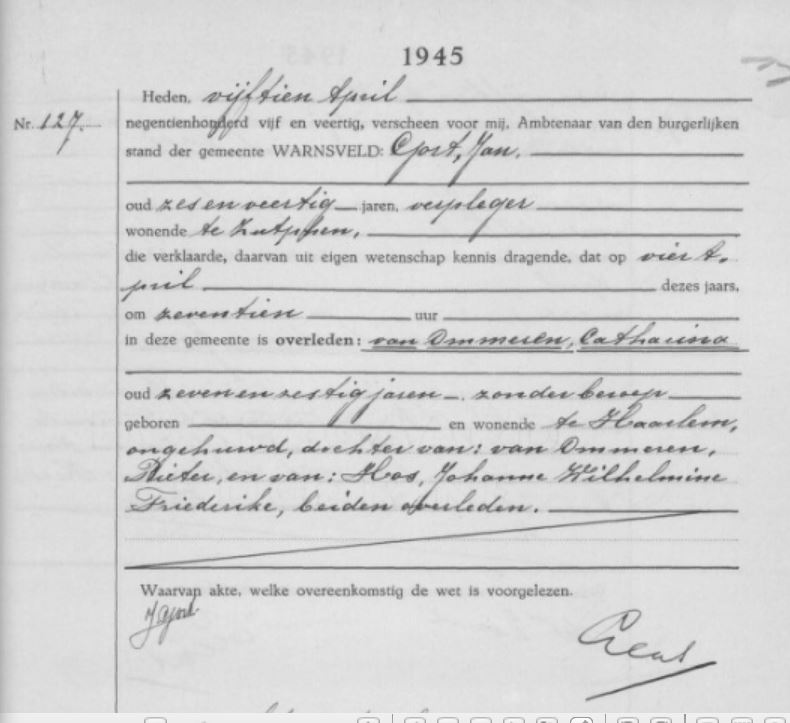 1945
Heden, vijftien April
Nr. 127.
negentienhonderd vijf en veertig, verscheen voor mij, Ambtenaar van den burgerlijken
stand der gemeente WARNSVELD: Gort, Jan.
oud zesenveertig jaren, verpleger
wonende te Zutphen,
die verklaarde, daarvan uit eigen wetenschap kennis dragende, dat op vier A-
pril dezes jaars,
om zeventien uur
in deze gemeente is overleden: van Ommeren, Catharina
oud zevenenzestig jaren – zonder beroep
geboren en wonende te Haarlem,
ongehuwd, dochter van: van Ommeren,
Pieter, en van: Hos, Johanne Wilhelmine
Friederike, beiden overleden.
Waarvan akte, welke overeenkomstig de wet is voorgelezen.